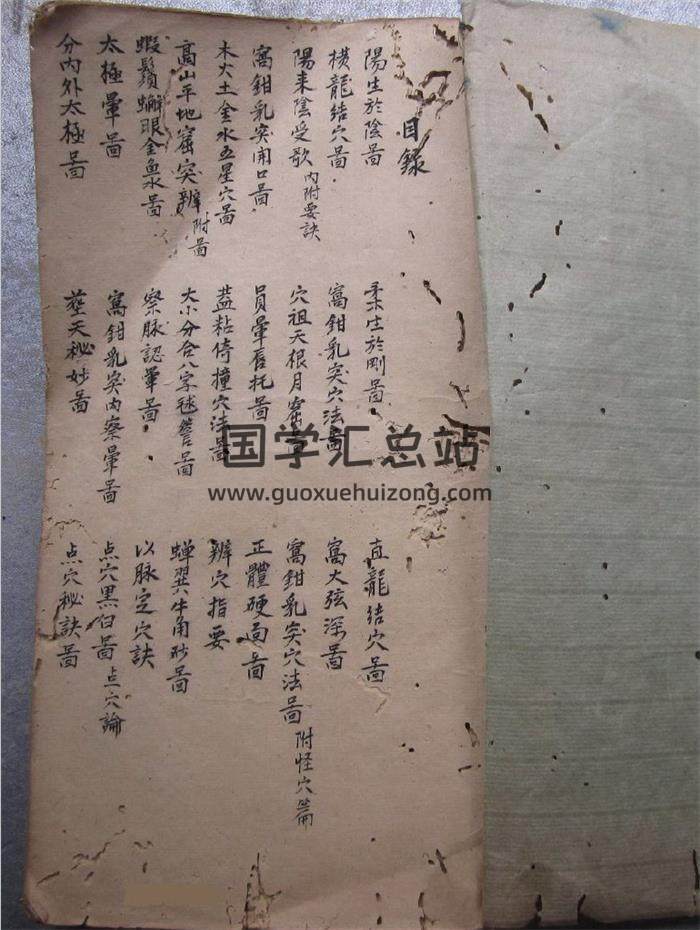 目錄
陽生於陰啚 柔生於剛啚 直龍結穴啚
橫龍結穴啚 窩鉗乳突穴法啚 窩大弦深啚
陽来陰受歌 內附要訣 穴祖天根月窟 窩鉗乳突穴法啚 附怪穴篇
窩鉗乳突開口啚 員暈唇托啚 正體硬面啚
木火土金水五星穴啚 葢粘倚撞穴法啚 辨穴指要
高山平地窟突辨 附啚 大小分合八字毬簷啚 蟬翼牛角砂啚
蝦鬚蠏眼金魚水啚 察脉認暈啚 以脉定穴訣
太極暈啚 窩鉗乳突內察暈啚 点穴黑白啚 点穴論
分內外太極啚 塟天秘妙啚 点穴秘訣啚
国学汇总站
www.guoxuehuizong.com